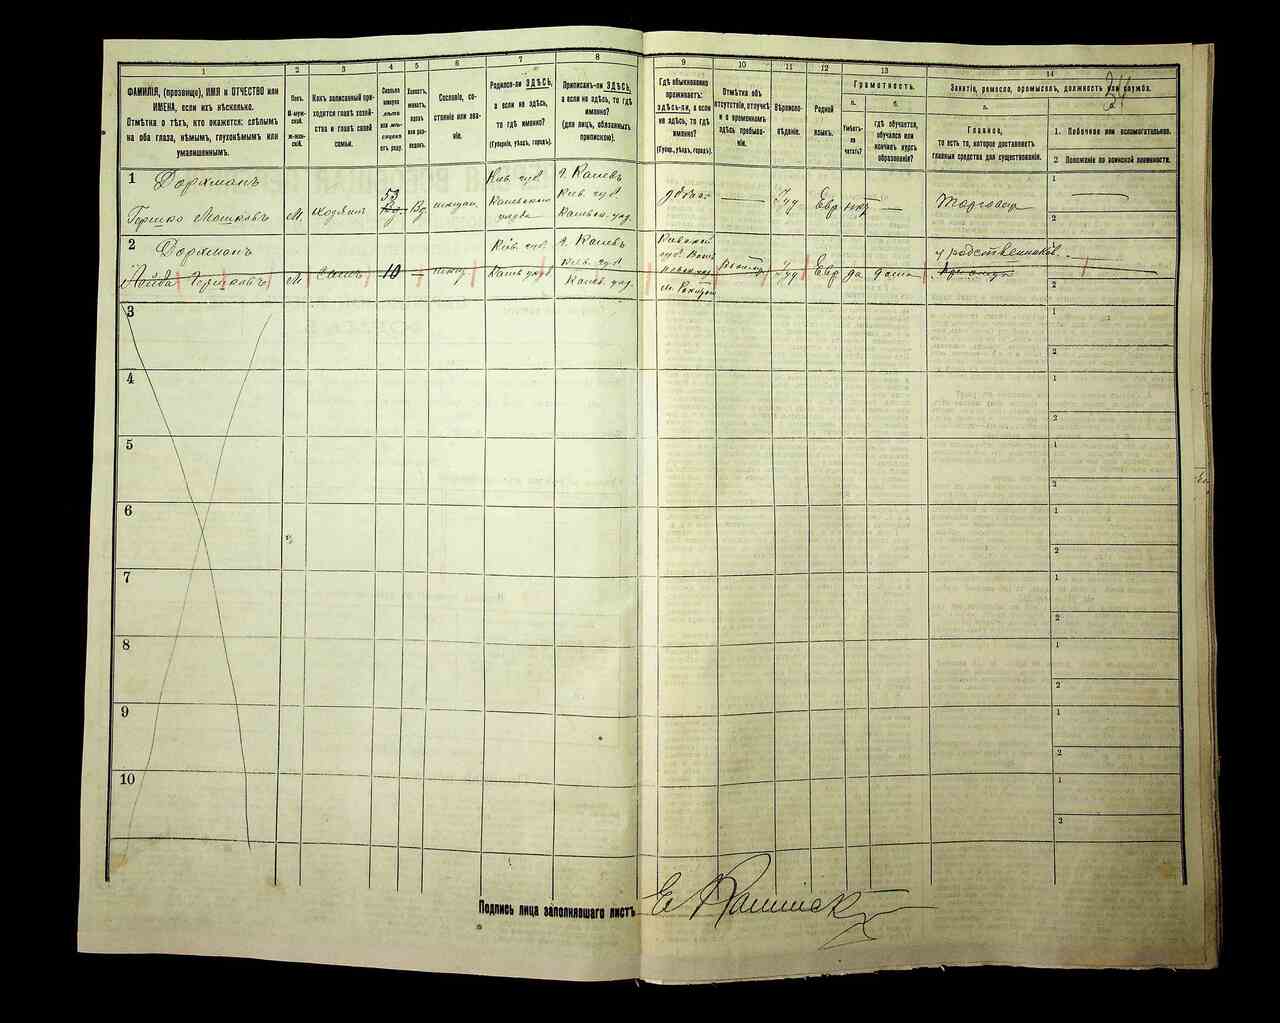 1
2
3
4
5
6
7
8
9
10
11
12
13
14
ФАМИЛІЯ, (прозвище), ИМЯ и ОТЧЕСТВО или
ИМЕНА, если ихъ нѣсколько.
Отмѣтка о тѣхъ, кто окажется: слѣпымъ
на оба глаза, нѣмымъ, глухонѣмымъ или
умалишеннымъ.
Полъ.
М-муж-
ской.
ж-жен-
скій.
Какъ записанный при-
ходится главѣ хозяй-
ства и главѣ своей
семьи.
Сколько
минуло
лѣтъ
или мѣ-
сяцевъ
отъ роду.
Холостъ,
женатъ,
вдовъ
или раз-
веденъ.
Сословіе, со-
стояніе или зва-
ніе.
Родился-ли ЗДѢСЬ,
а если не здѣсь,
то гдѣ именно?
(Губернія, уѣздъ, городъ).
Приписанъ-ли ЗДѢСЬ,
а если не здѣсь, то гдѣ
именно?
(для лицъ, обязанныхъ
припискою).
Гдѣ обыкновенно
проживаетъ:
здѣсь-ли, а если
не здѣсь, то гдѣ
именно?
(Губерн., уѣздъ, городъ).
Отмѣтка объ
отсутствіи, отлучкѣ
и о временномъ
здѣсь пребыва-
ніи.
Вѣроиспо-
вѣданіе.
Родной
языкъ.
Грамотность.
а.
Умѣетъ-
ли
читать?
б.
гдѣ обучается,
обучался или
кончилъ курсъ
образованія?
Занятіе, ремесло, промыселъ, должность или служба.
а.
Главное,
то есть то, которое доставляетъ
главныя средства для существованія.
1. Побочное или вспомогательное.
2 Положеніе по воинской повинности.
1 Дорхманъ
Гершко Мошковъ
М
хозяинъ
53
Вд
Кіев. губ.
Каневскаго
уѣзда
г. Каневъ
Кіев. губ.
Канев. уѣзд.
Іуд
Евр
—
Торговля
1
2
2 Дорхманъ
Гершковъ
М
Сынъ
10
—
Кіев. губ
г. Каневъ
Кіев. губ
Канев. уѣзд.
Іуд
Евр
да
дома
у родственниковъ
2
3
1
2
4
1
2
5
1
2
6
1
2
7
1
2
8
1
2
9
1
2
10
1
2
Подпись лица заполнявшаго листъ